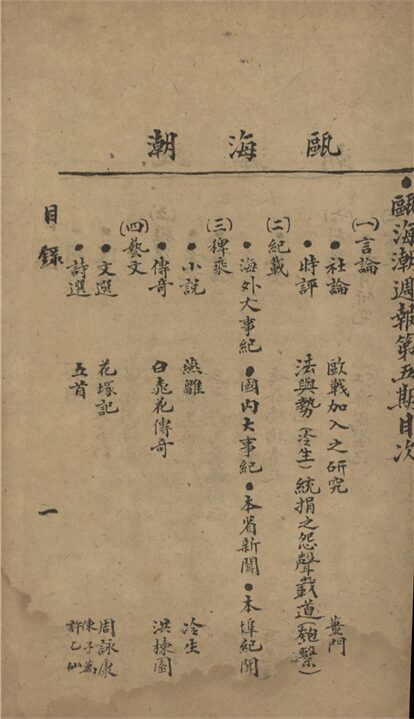 甌海潮
甌海潮週報第五期目次
(一)言論
社論 歐戰加入之研究 薑門
時評 法與勢(冷生)統捐之怨聲載道(匏繫)
(二)紀載
海外大事紀 國內大事紀 本省新聞 本埠紀聞
(三)稗乘
小說 燕雛 冷生
傳奇 白鳧花傳奇 洪棟園
(四)藝文
文選 花塚記 周詠康
詩選 五首 陳子萬 許乙仙
目錄
一